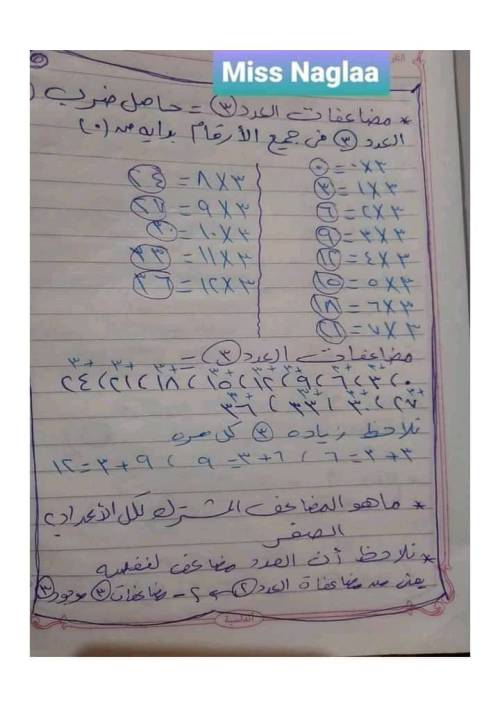 Miss Naglaa
* مضاعفات العدد ٣ = حاصل ضرب
العدد ٣ فى جميع الأرقام بداية من (٠)
٣×٠ = ٠
٣×١ = ٣
٣×٢ = ٦
٣×٣ = ٩
٣×٤ = ١٢
٣×٥ = ١٥
٣×٦ = ١٨
٣×٧ = ٢١
٣×٨ = ٢٤
٣×٩ = ٢٧
٣×١٠ = ٣٠
٣×١١ = ٣٣
٣×١٢ = ٣٦
مضاعفات العدد ٣ =
٠، ٣، ٦، ٩، ١٢، ١٥، ١٨، ٢١، ٢٤
٢٧، ٣٠، ٣٣، ٣٦
نلاحظ زياده ٣ كل مره
٣+٣=٦، ٦+٣=٩، ٩+٣=١٢
* ما هو المضاعف المشترك لكل الأعداد؟
الصفر
* نلاحظ أن العدد مضاعف لنفسه
يعنى من مضاعفاة العدد ٢ ← ٢ - مضاعفات ٣ موجود ٣
القادسية